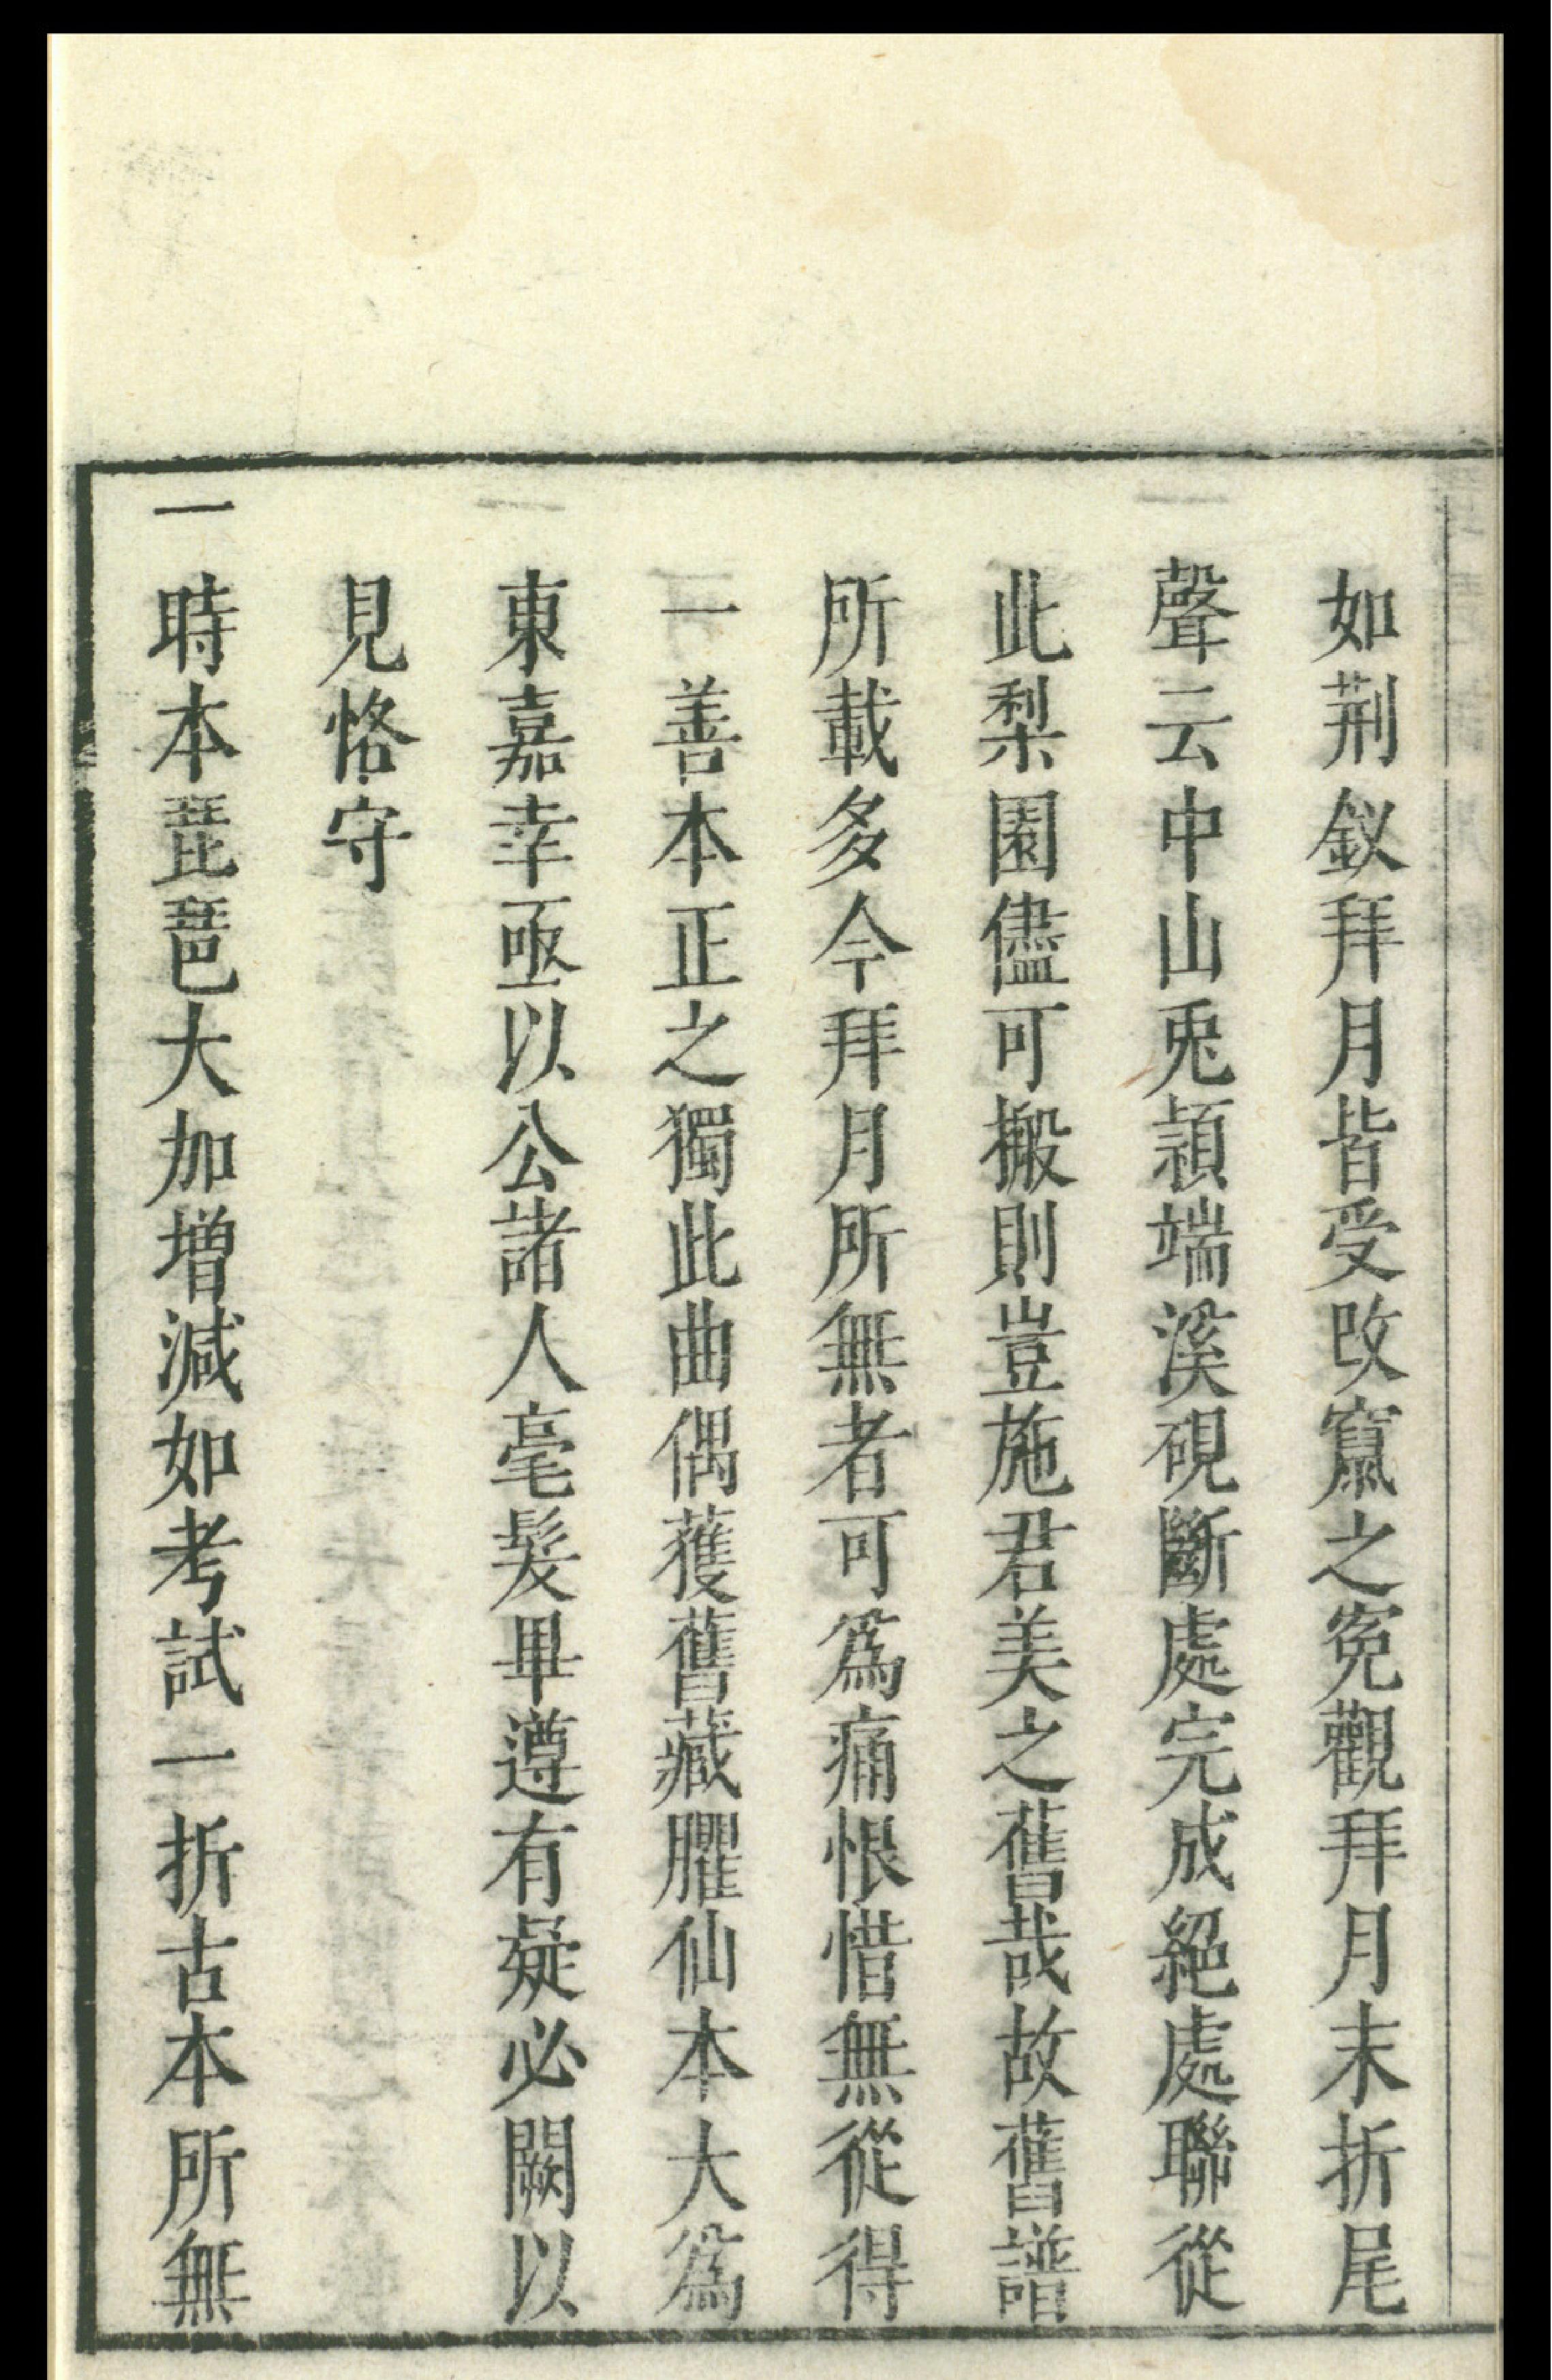 如荆釵拜月皆受改竄之寃觀拜月末折尾
聲云中山兎頴端溪硯斷處完成絕處聯從
此梨園儘可搬則豈施君美之舊哉故舊譜
所載多今拜月所無者可爲痛恨惜無從得
一善本正之獨此曲偶獲舊藏臞仙本大爲
東嘉幸亟以公諸人毫髮畢遵有疑必闕以
見恪守
一時本琵琶大加増減如考試一折古本所無